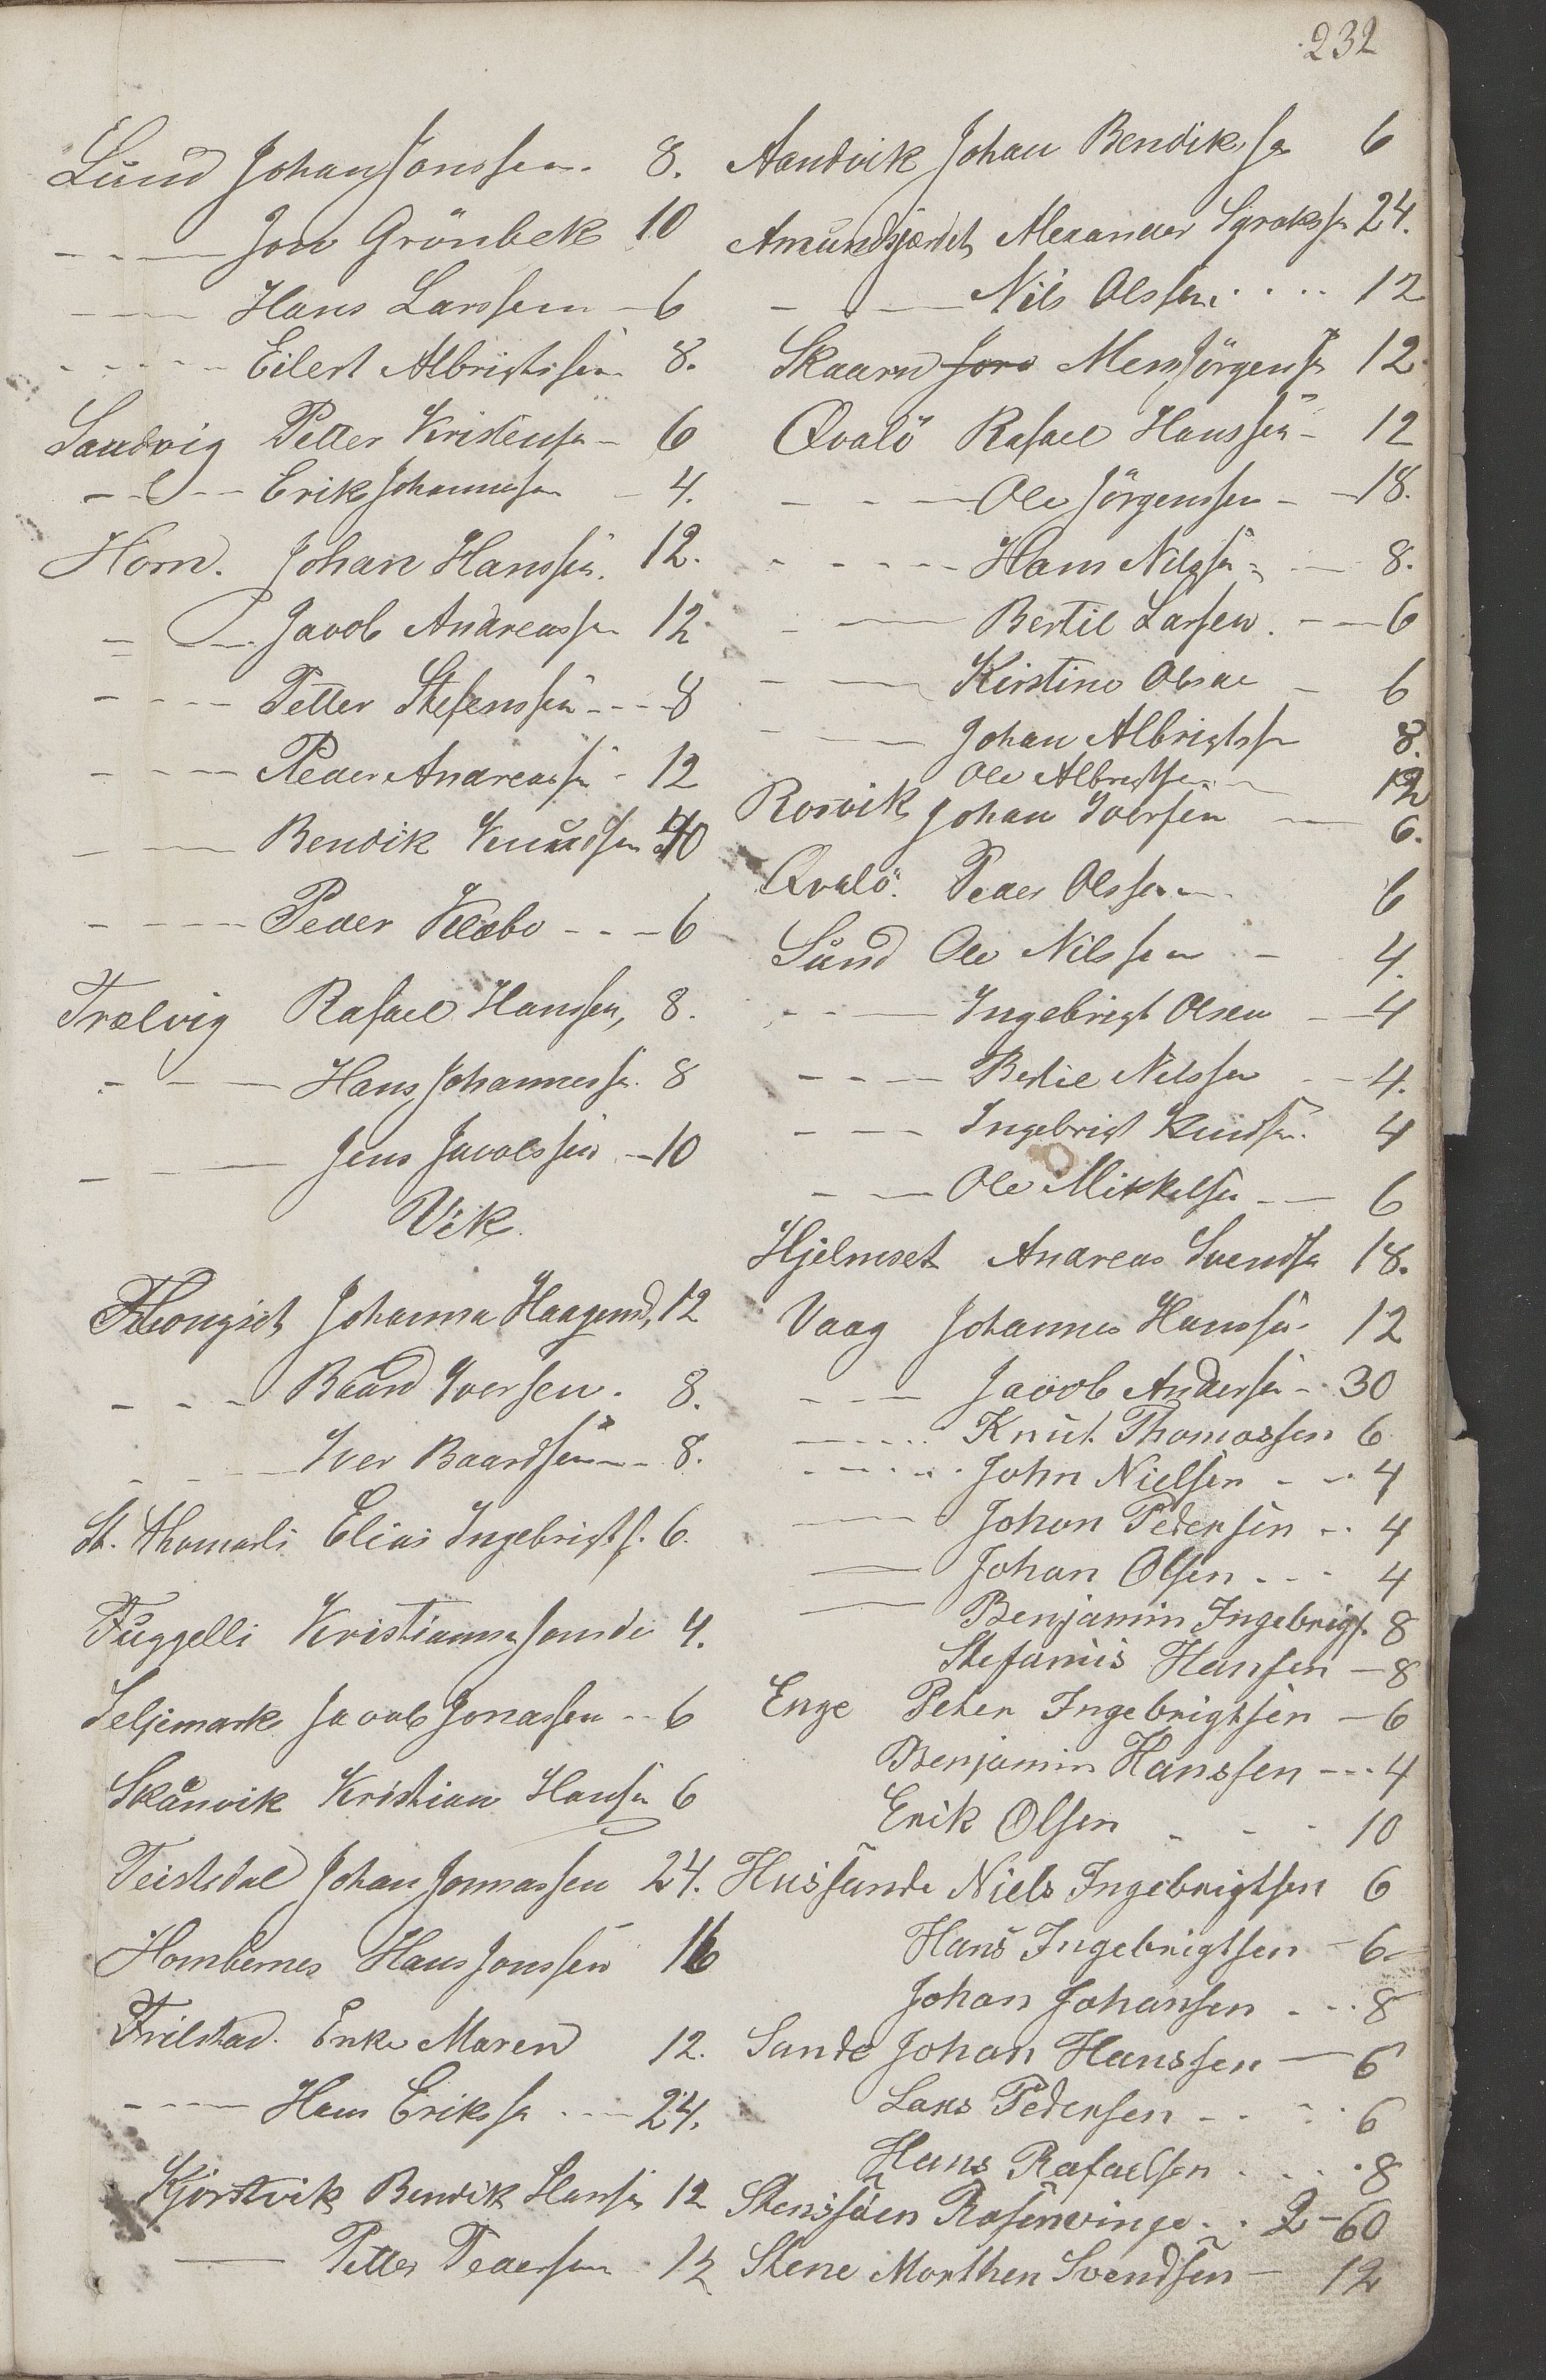 232
Lund Johan Jonssen. 8.
Jon Grönbek 10
Hans Larssen 6
Eilert Albrigtssen 8.
Sandvig Petter Kristensen 6
Erik Johannesen 4.
Horn. Johan Hanssen. 12.
Jacob Andreassen 12
Petter Stefenssen 8
Peder Andreassen 12
Bendik Knudssen 10
Peder Klæbo 6
Trælvig Rafael Hanssen, 8.
Hans Johannessen. 8
Jens Jacobssen 10
Vik.
Johanna Haagensd. 12
Baard Iversen. 8.
Iver Baardsen 8.
St. Thomasli Elias Ingebrigts. 6.
Fuggelli Kristianna 4.
Seljemark Jacob Jonassen 6
Skånvik Kristian Hansen 6
Teistedal Johan Jonnassen 24.
Hombernes Hans Jonssen 16
Frilstad. Enke Maren 12.
Hans Erikssen 24.
Bendik Hansen 12
Petter Pedersen 12
Aandvik Johan Bendiks. 6
Alexander 24.
Nils Olssen 12
Skaarn Mens Jörgens. 12
Qvalö Rafael Hanssen 12
Ole Jörgenssen 18.
Hans Nilssen 8.
Bertil Larsen. 6
Kirstine Olsen 6
Johan Albrigtssen 8.
Ole Albrigtsen 12
Rosvik Johan Iversen 6.
Qvalö. Peder Olssen 6
Sund Ole Nilssen 4.
Ingebrigt Olsen 4
Bertil Nilssen 4.
Ingebrigt Knudsen. 4
Ole Mikkelsen 6
Hjelmset Andreas Svends. 18.
Vaag Johannes Hanssen 12
Jacob Andersen 30
Knut Thomassen 6
John Nielsen 4
Johan Pedersen 4
Johan Olsen 4
Benjamin Ingebrigt. 8
Stefanus Hansen 8
Enge Peter Ingebrigtsen 6
Benjamin Hanssen 4
Erik Olsen 10
Hussunde Niels Ingebrigtsen 6
Hans Ingebrigtsen 6
Johan Johansen 8
Sande Johan Hanssen 6
Lars Pedersen 6
Hans Rafaelsen 8
Stensöen Rosenvinge 2-60
Stene Morthen Svendsen 12